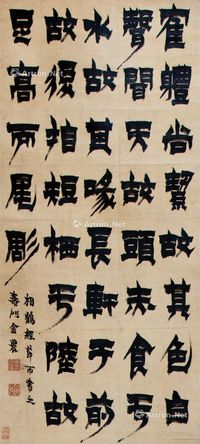 隺體尚絜故其色白
聲聞天故頭赤食于
水故其喙長軒于前
故後指短栖于陸故
足高而尾彫
相鶴經 書之
壽門金農
Artron.Net